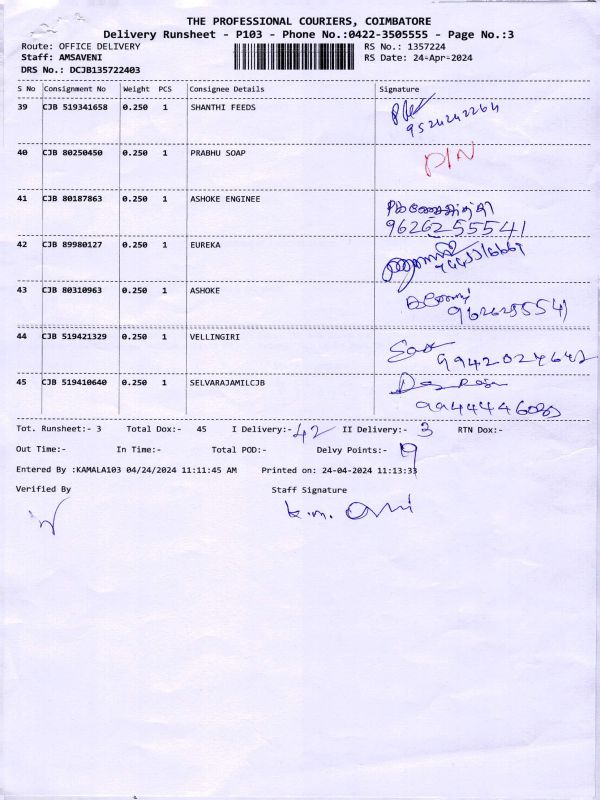 THE PROFESSIONAL COURIERS, COIMBATORE
Delivery Runsheet - P103 - Phone No.:0422-3505555 - Page No.:3
Route: OFFICE DELIVERY RS No.: 1357224
Staff: AMSAVENI RS Date: 24-Apr-2024
DRS No.: DCJB135722403
S No Consignment No Weight PCS Consignee Details Signature
39 CJB 519341658 0.250 1 SHANTHI FEEDS
9524242264
40 CJB 80250450 0.250 1 PRABHU SOAP PIN
41 CJB 80187863 0.250 1 ASHOKE ENGINEE
9626255541
42 CJB 89980127 0.250 1 EUREKA
43 CJB 80310963 0.250 1 ASHOKE
9626255541
44 CJB 519421329 0.250 1 VELLINGIRI
45 CJB 519410640 0.250 1 SELVARAJAMILCJB
Tot. Runsheet:- 3 Total Dox:- 45 I Delivery:- 42 II Delivery:- 3 RTN Dox:-
Out Time:- In Time:- Total POD:- Delvy Points:- 19
Entered By :KAMALA103 04/24/2024 11:11:45 AM Printed on: 24-04-2024 11:13:33
Verified By Staff Signature
k.m.